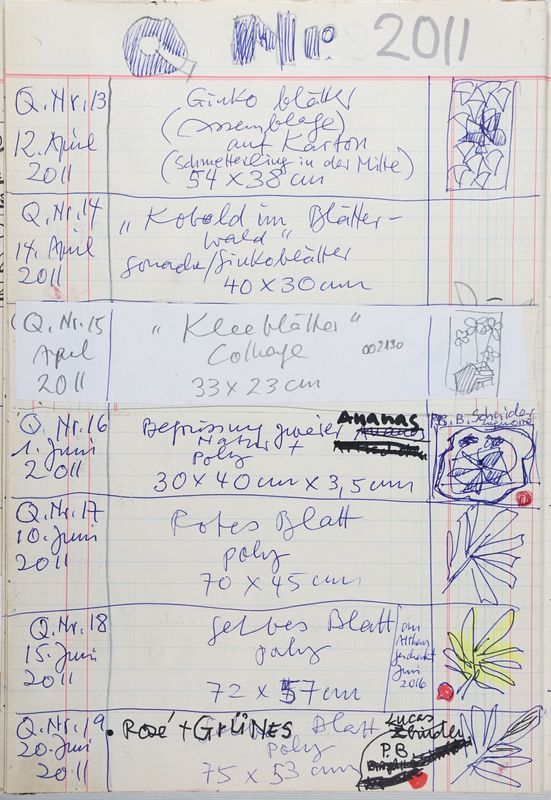 2011
Q. Nr. 13
12. April
2011
Ginko blätter
(Assemblage)
auf Karton
(Schmetterling in der Mitte)
54 x 38 cm
Q. Nr. 14
14. April
2011
„Kobold im Blätter-
wald"
Gouache/Ginkoblätter
40 x 30 cm
Q. Nr. 15
April
2011
„Kleeblätter"
Collage
002130
33 x 23 cm
Q. Nr. 16
1. Juni
2011
Begrüssung zweier Ananas
Natur +
Poly
30 x 40 cm x 3,5 cm
P.B. B. Schneider
Q. Nr. 17
10. Juni
2011
Rotes Blatt
poly
70 x 45 cm
Q. Nr. 18
15. Juni
2011
Gelbes Blatt
poly
72 x 57 cm
an
geschenkt
Juni
2016
Q. Nr. 19
20. Juni
2011
• Rosé + GRÜNES Blatt
poly
75 x 53 cm
Lucas
P.B.